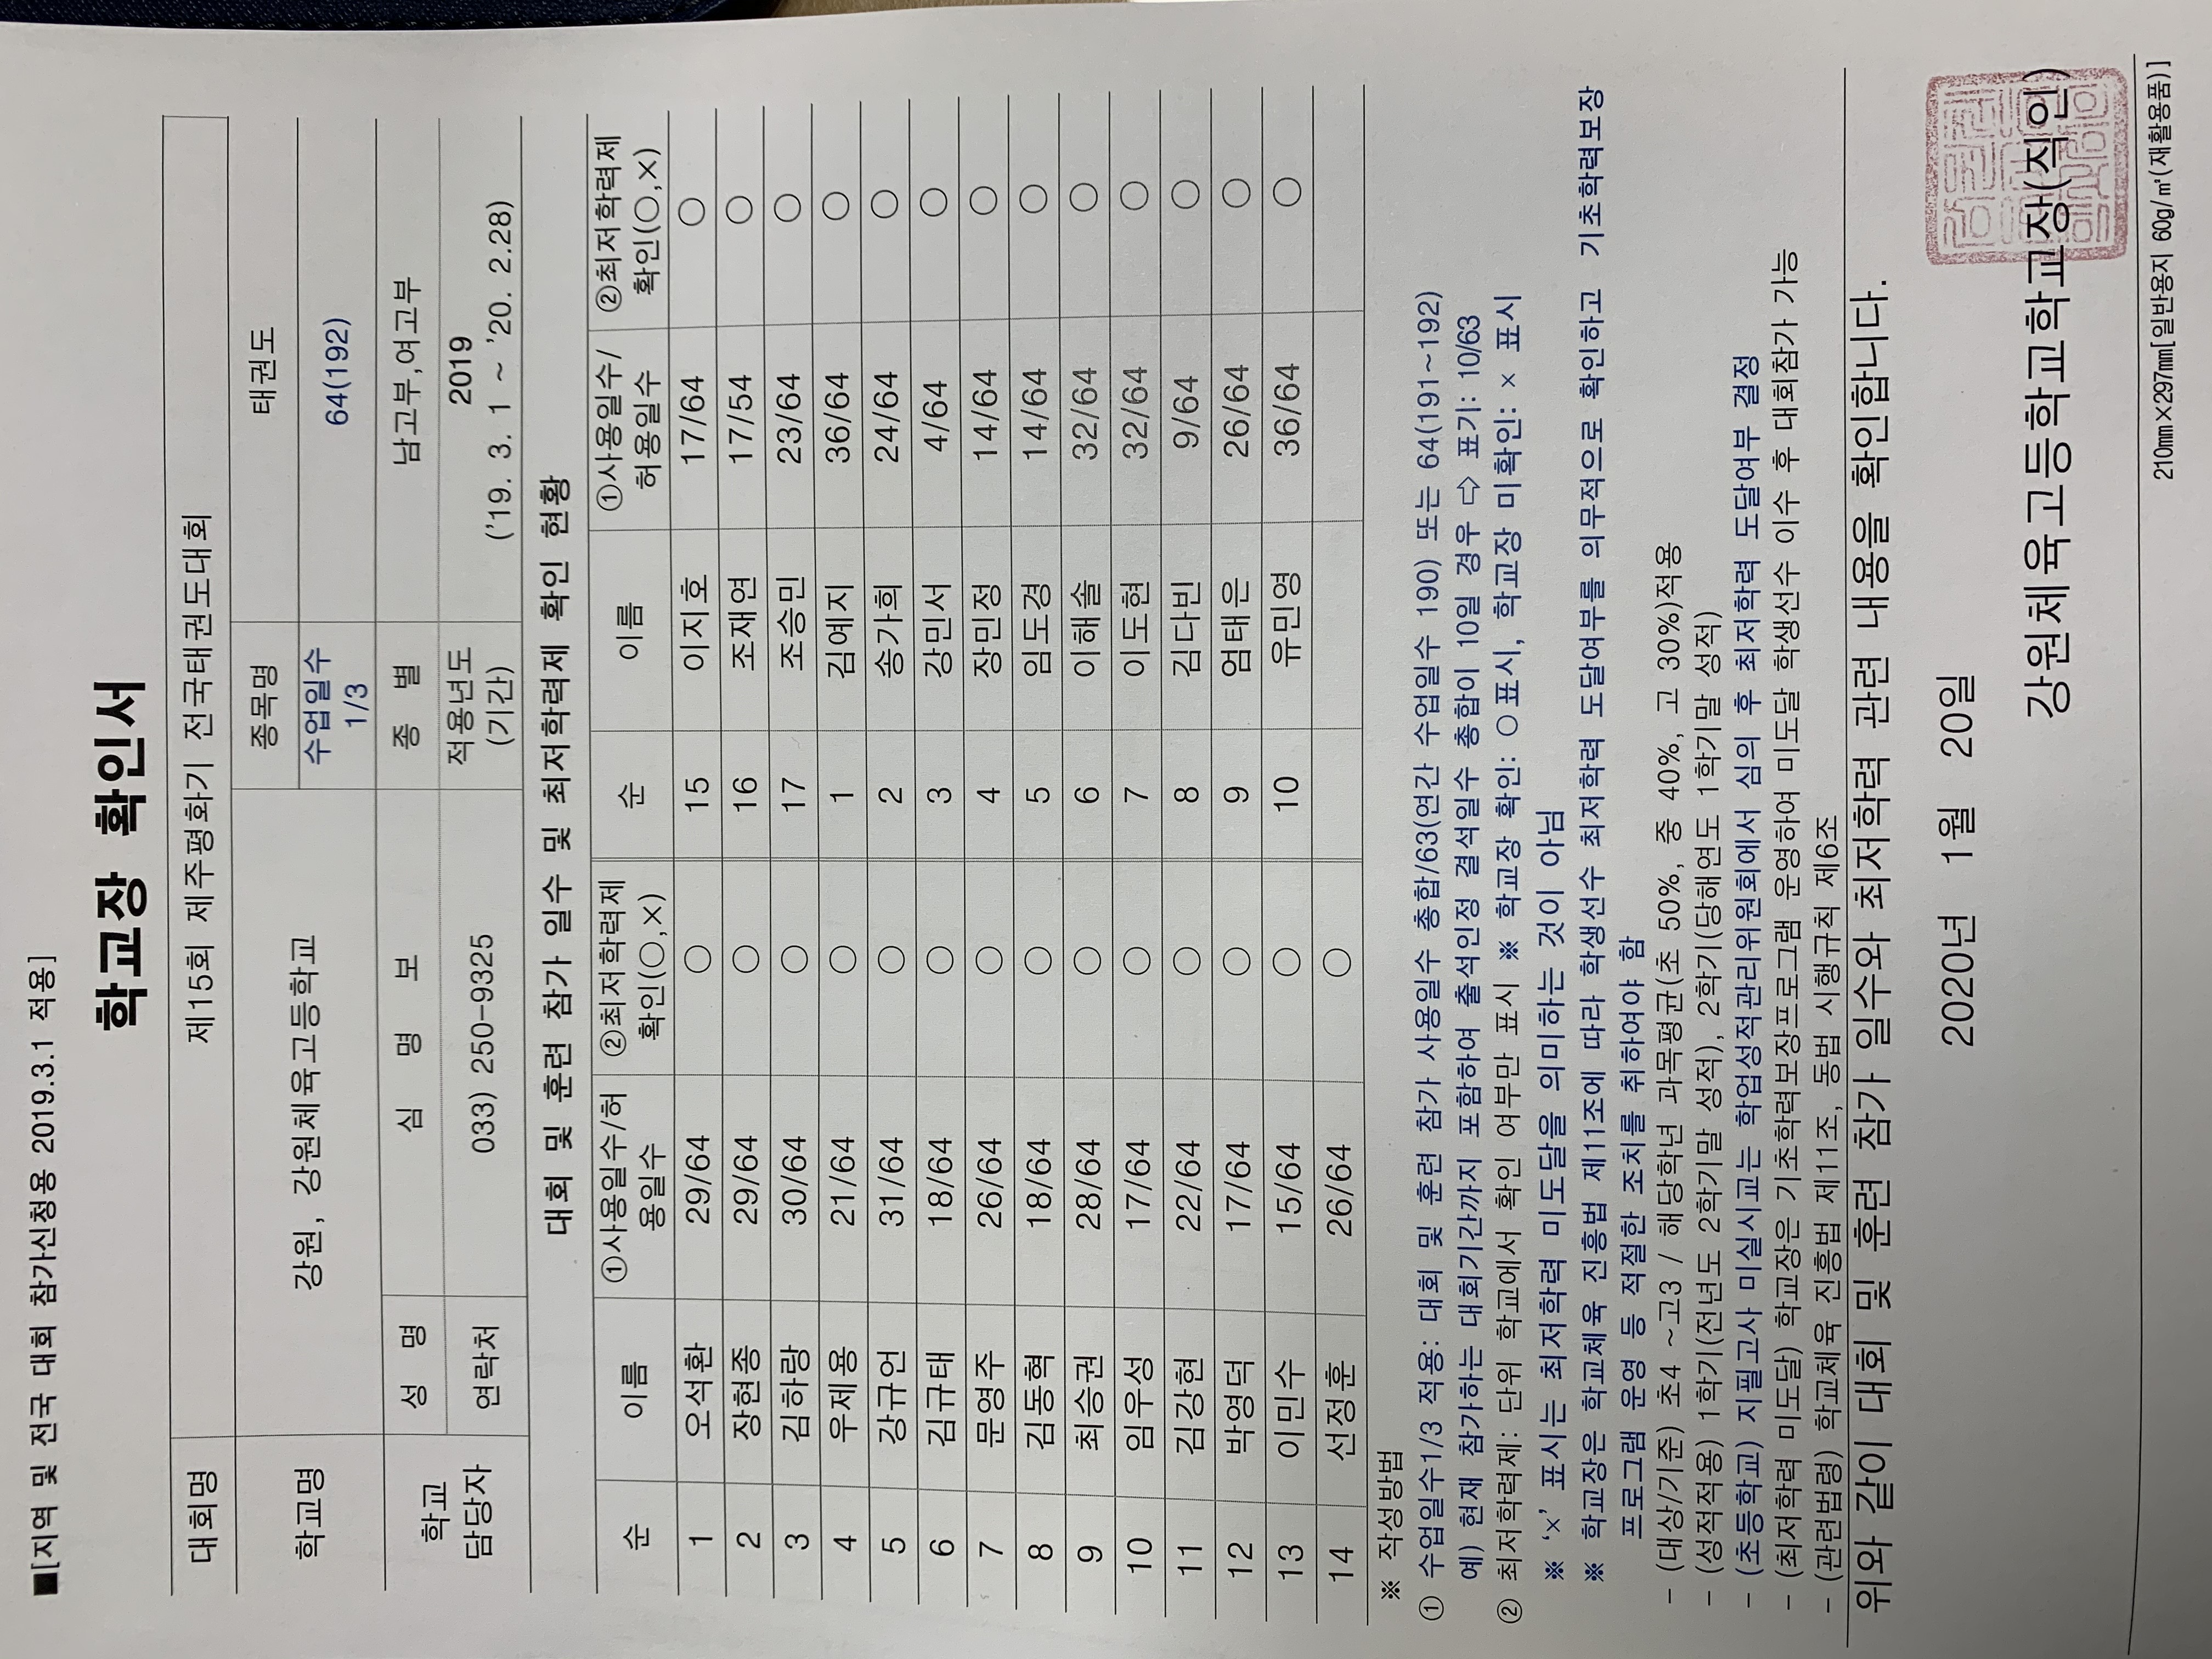 ■[지역 및 전국 대회 참가신청용 2019.3.1 적용]
학교장 확인서
대회명 제15회 제주평화기 전국태권도대회
학교명 강원, 강원체육고등학교 종목명 태권도
수업일수 1/3 64(192)
학교 담당자 성 명 심 명 보 종 별 남고부,여고부
연락처 033) 250-9325 적용년도 (기간) 2019 ('19. 3. 1 ~ '20. 2.28)
대회 및 훈련 참가 일수 및 최저학력제 확인 현황
순 이름 ①사용일수/허용일수 ②최저학력제 확인(○,×) 순 이름 ①사용일수/허용일수 ②최저학력제 확인(○,×)
1 오석환 29/64 ○ 15 이지호 17/64 ○
2 장현종 29/64 ○ 16 조재연 17/54 ○
3 김하랑 30/64 ○ 17 조승민 23/64 ○
4 우제용 21/64 ○ 1 김예지 36/64 ○
5 강규언 31/64 ○ 2 송가희 24/64 ○
6 김규태 18/64 ○ 3 강민서 4/64 ○
7 문영주 26/64 ○ 4 장민정 14/64 ○
8 김동혁 18/64 ○ 5 임도경 14/64 ○
9 최승권 28/64 ○ 6 이해솔 32/64 ○
10 임우성 17/64 ○ 7 이도현 32/64 ○
11 김강현 22/64 ○ 8 김다빈 9/64 ○
12 박영덕 17/64 ○ 9 엄태은 26/64 ○
13 이민수 15/64 ○ 10 유민영 36/64 ○
14 선정훈 26/64 ○
※ 작성방법
① 수업일수1/3 적용: 대회 및 훈련 참가 사용일수 총합/63(연간 수업일수 190) 또는 64(191~192)
예) 현재 참가하는 대회기간까지 포함하여 출석인정 결석일수 총합이 10일 경우 ⇨ 표기: 10/63
② 최저학력제: 단위 학교에서 확인 여부만 표시 ※ 학교장 확인: ○ 표시, 학교장 미확인: × 표시
※ '×' 표시는 최저학력 미도달을 의미하는 것이 아님
※ 학교장은 학교체육 진흥법 제11조에 따라 학생선수 최저학력 도달여부를 의무적으로 확인하고 기초학력보장
프로그램 운영 등 적절한 조치를 취하여야 함
- (대상/기준) 초4 ~고3 / 해당학년 과목평균(초 50%, 중 40%, 고 30%)적용
- (성적적용) 1학기(전년도 2학기말 성적), 2학기(당해연도 1학기말 성적)
- (초등학교) 지필고사 미실시교는 학업성적관리위원회에서 심의 후 최저학력 도달여부 결정
- (최저학력 미도달) 학교장은 기초학력보장프로그램 운영하여 미도달 학생선수 이수 후 대회참가 가능
- (관련법령) 학교체육 진흥법 제11조, 동법 시행규칙 제6조
위와 같이 대회 및 훈련 참가 일수와 최저학력 관련 내용을 확인합니다.
2020년 1월 20일
강원체육고등학교학교장(직인)
210㎜×297㎜[일반용지 60g/㎡(재활용품)]